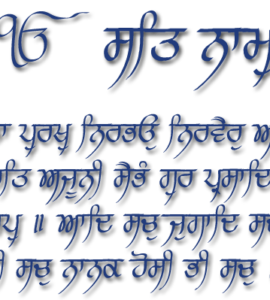 ੴ ਸਤਿ ਨਾਮੁ
ਪੁਰਖੁ ਨਿਰਭਉ ਨਿਰਵੈਰੁ
ਅਜੂਨੀ ਸੈਭੰ ਗੁਰ ਪ੍ਰਸਾਦਿ
॥ ਆਦਿ ਸਚੁ ਜੁਗਾਦਿ
ਸਚੁ ਨਾਨਕ ਹੋਸੀ ਭੀ ਸਚੁ